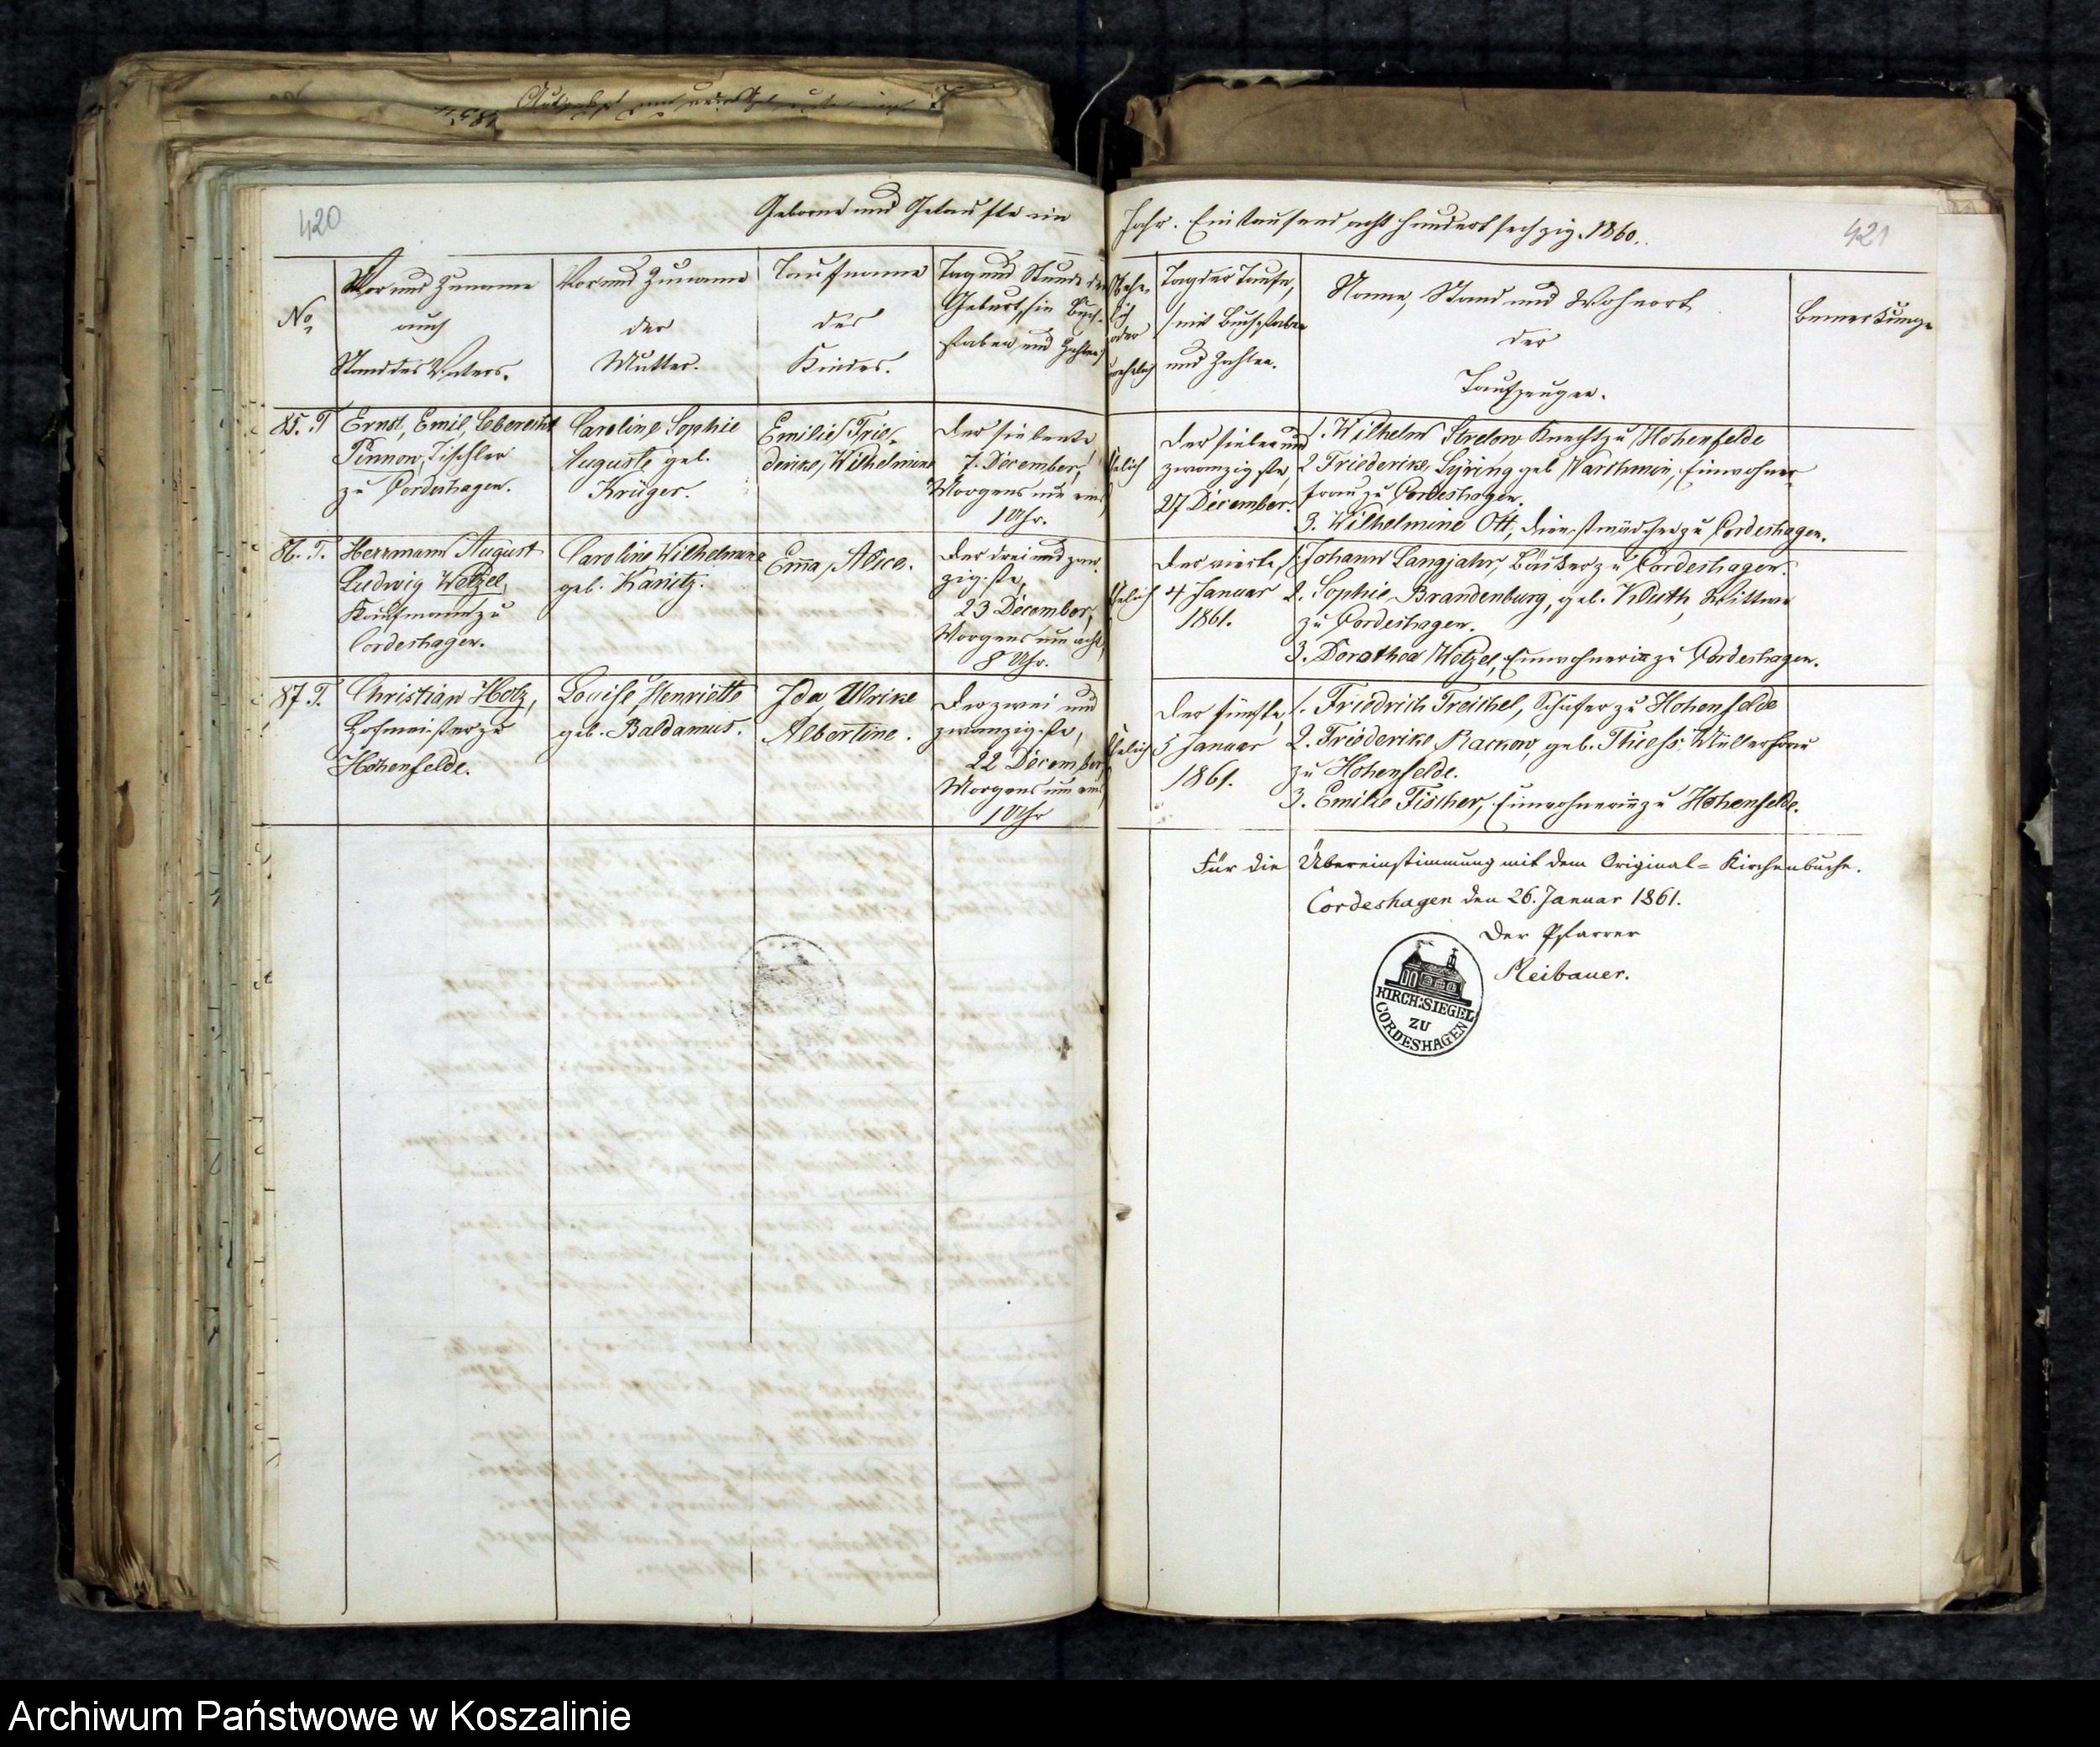 420
Geborne und Getaufte im
No
Vor und Zuname
auch
Stand des Vaters.
Vor und Zuname
der
Mutter.
Taufname
des
Kindes.
Tag und Stunde der
Geburt, (in Buch-
staben und Zahlen)
85. T
Ernst, Emil, Leberecht
Pinnow, Tischler
zu Cordeshagen.
Caroline Sophie
Auguste geb.
Krüger.
Emilie, Frie-
derike, Wilhelmine
Der siebente,
7. December,
Morgens um eins,
1 Uhr.
86. T.
Herrmann August
Ludwig Wetzel,
Kaufmann zu
Cordeshagen.
Caroline Wilhelmine
geb. Kanitz.
Emma, Alice.
Der drei und zwan-
zigste,
23 December,
Morgens um acht,
8 Uhr.
87 T.
Christian Holz,
Hofmeister zu
Hohenfelde.
Louise Henriette
geb. Baldamus.
Ida Ulrike
Albertine.
Der zwei und
zwanzigste,
22 December,
Morgens um eins,
1 Uhr
421
Jahr. Eintausend acht hundert sechzig. 1860.
Ehe-
lich
oder
unehelich
Tag der Taufe,
(mit Buchstaben
und Zahlen.
Name, Stand und Wohnort
der
Taufzeugen.
Bemerkung.
Ehelich
Der sieben und
zwanzigste,
27 December.
1. Wilhelm Strelow Knecht zu Hohenfelde
2 Friederike, Syring geb Warchmin, Einwohner
frau zu Cordeshagen.
3. Wilhelmine Ott, Dienstmädchen zu Cordeshagen.
Ehelich
Der vierte,
4 Januar
1861.
1. Johann Langjahr, Bäcker zu Cordeshagen.
2. Sophie Brandenburg, geb. Wittwe
zu Cordeshagen.
3. Dorothea Wetzel, Einwohnerin zu Cordeshagen.
Ehelich
Der fünfte,
5 Januar
1861.
1. Friedrich Treichel, Schäfer zu Hohenfelde
2. Friederike Rackow, geb. Thiess. Müllerfrau
zu Hohenfelde.
3. Emilie Fischer, Einwohnerin zu Hohenfelde.
Für die Übereinstimmung mit dem Original-Kirchenbuche.
Cordeshagen den 26. Januar 1861.
Der Pfarrer
Meibauer.
KIRCH: SIEGEL
ZU
CORDESHAGEN
Archiwum Państwowe w Koszalinie